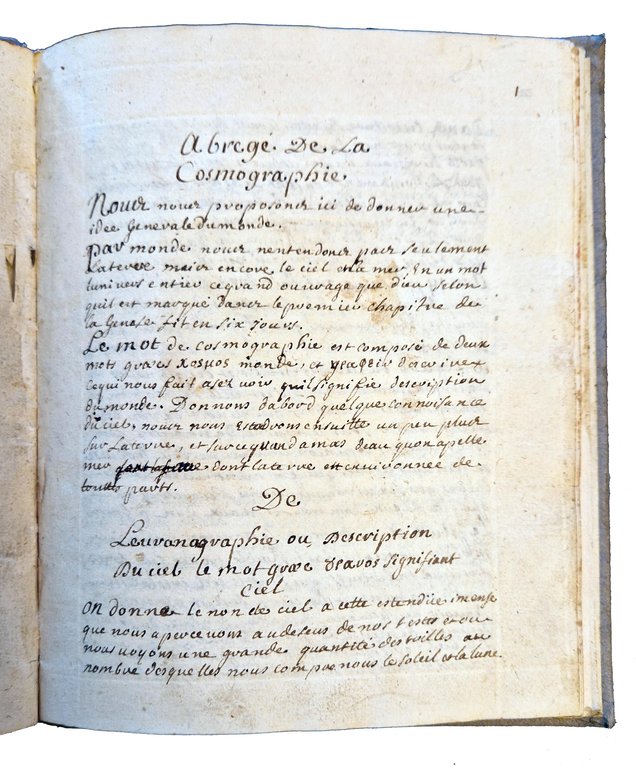 1
Abregé De La
Cosmographie.
Nous nous proposons ici de donner une
idee Generale Du monde.
Par monde nous nentendons pas seulement
Laterre mais encore le ciel et la mer, En un mot
lunivers entier ce grand ouvrage que dieu selon
quil est marqué Dans le premier chapitre de
la Genese fit en six jours.
Le mot de cosmographie est composé de deux
mots graecs monde, et d'ecrire
ce qui nous fait asez voir quil signifie description
du monde. Donnons dabord quelque connoisance
du ciel, nous nous Estendrons ensuitte un peu plus
sur Laterre, et sur ce grand amas deau quon apelle
mer dont laterre est environnee de
toutes parts.
De
Leuranagraphie ou Description
Du ciel le mot graec signifiant
Ciel
On donne le non de ciel a cette estendüe imense
que nous apercevons audesus de nos testes et ou
nous voyons une grande quantité destoilles au
nombre desquelles nous comprenons le soleil et la lune.